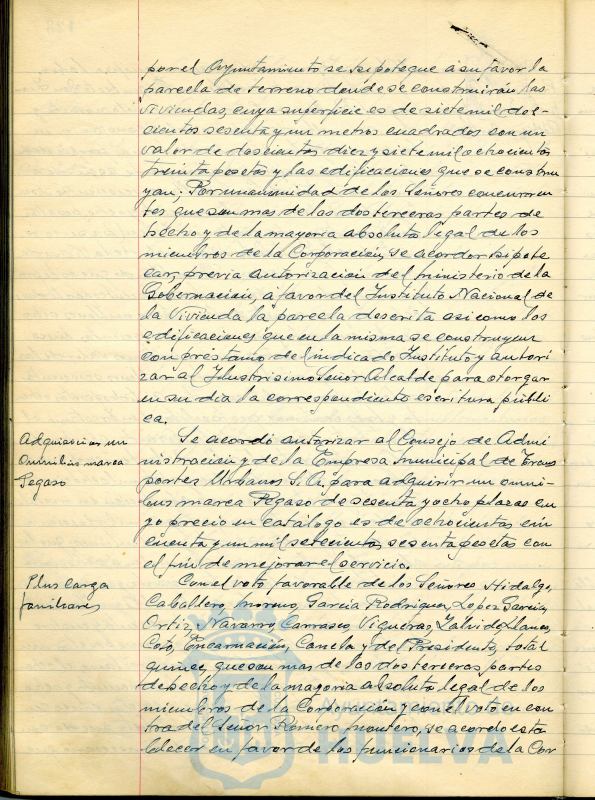 por el Ayuntamiento se hipoteque a su favor la
parcela de terreno donde se construirán las
viviendas, cuya superficie es de siete mil dos-
cientos sesenta y un metros cuadrados con un
valor de doscientas diez y siete mil ochocientas
treinta pesetas y las edificaciones que se constru
yan; Por unanimidad de los Señores concurren
tes que son mas de las dos terceras partes de
hecho y de la mayoria absoluta legal de los
miembros de la Corporación, se acordor hipote
car, previa autorización del ministerio de la
Gobernación, a favor del Instituto Nacional de
la Vivienda la parcela descrita asi como los
edificaciones que en la misma se construyan
con prestamo del indicado Instituto y autori
zar al Ilustrisimo Señor Alcalde para otorgar
en su dia la correspondiente escritura públi
ca.
Adquisicion un
Omnibus marca
Pegaso
Se acordó autorizar al Consejo de Admi
nistración y de la Empresa municipal de Trans
portes Urbanos S.A. para adquirir un omni-
bus marca Pegaso de sesenta y ocho plazas cu
yo precio en catálogo es de ochocientas cin
cuenta y un mil setecientas sesenta pesetas con
el fin de mejorar el servicio.
Plus carga
familiares
Con el voto favorable de los Señores Hidalgo,
Caballero, Moreno, Garcia Rodriguez, Lopez Garcia,
Ortiz, Navarro, Carrasco, Vigueras, Zalvide Llanes,
Coto, Encarnación, Canela y del Presidente, total
quince, que son mas de las dos terceras partes
de hecho y de la mayoria absoluta legal de los
miembros de la Corporación y con el voto en con
tra del Señor Romero montero, se acordo esta
blecer en favor de los funcionarios de la Cor
HUELVA